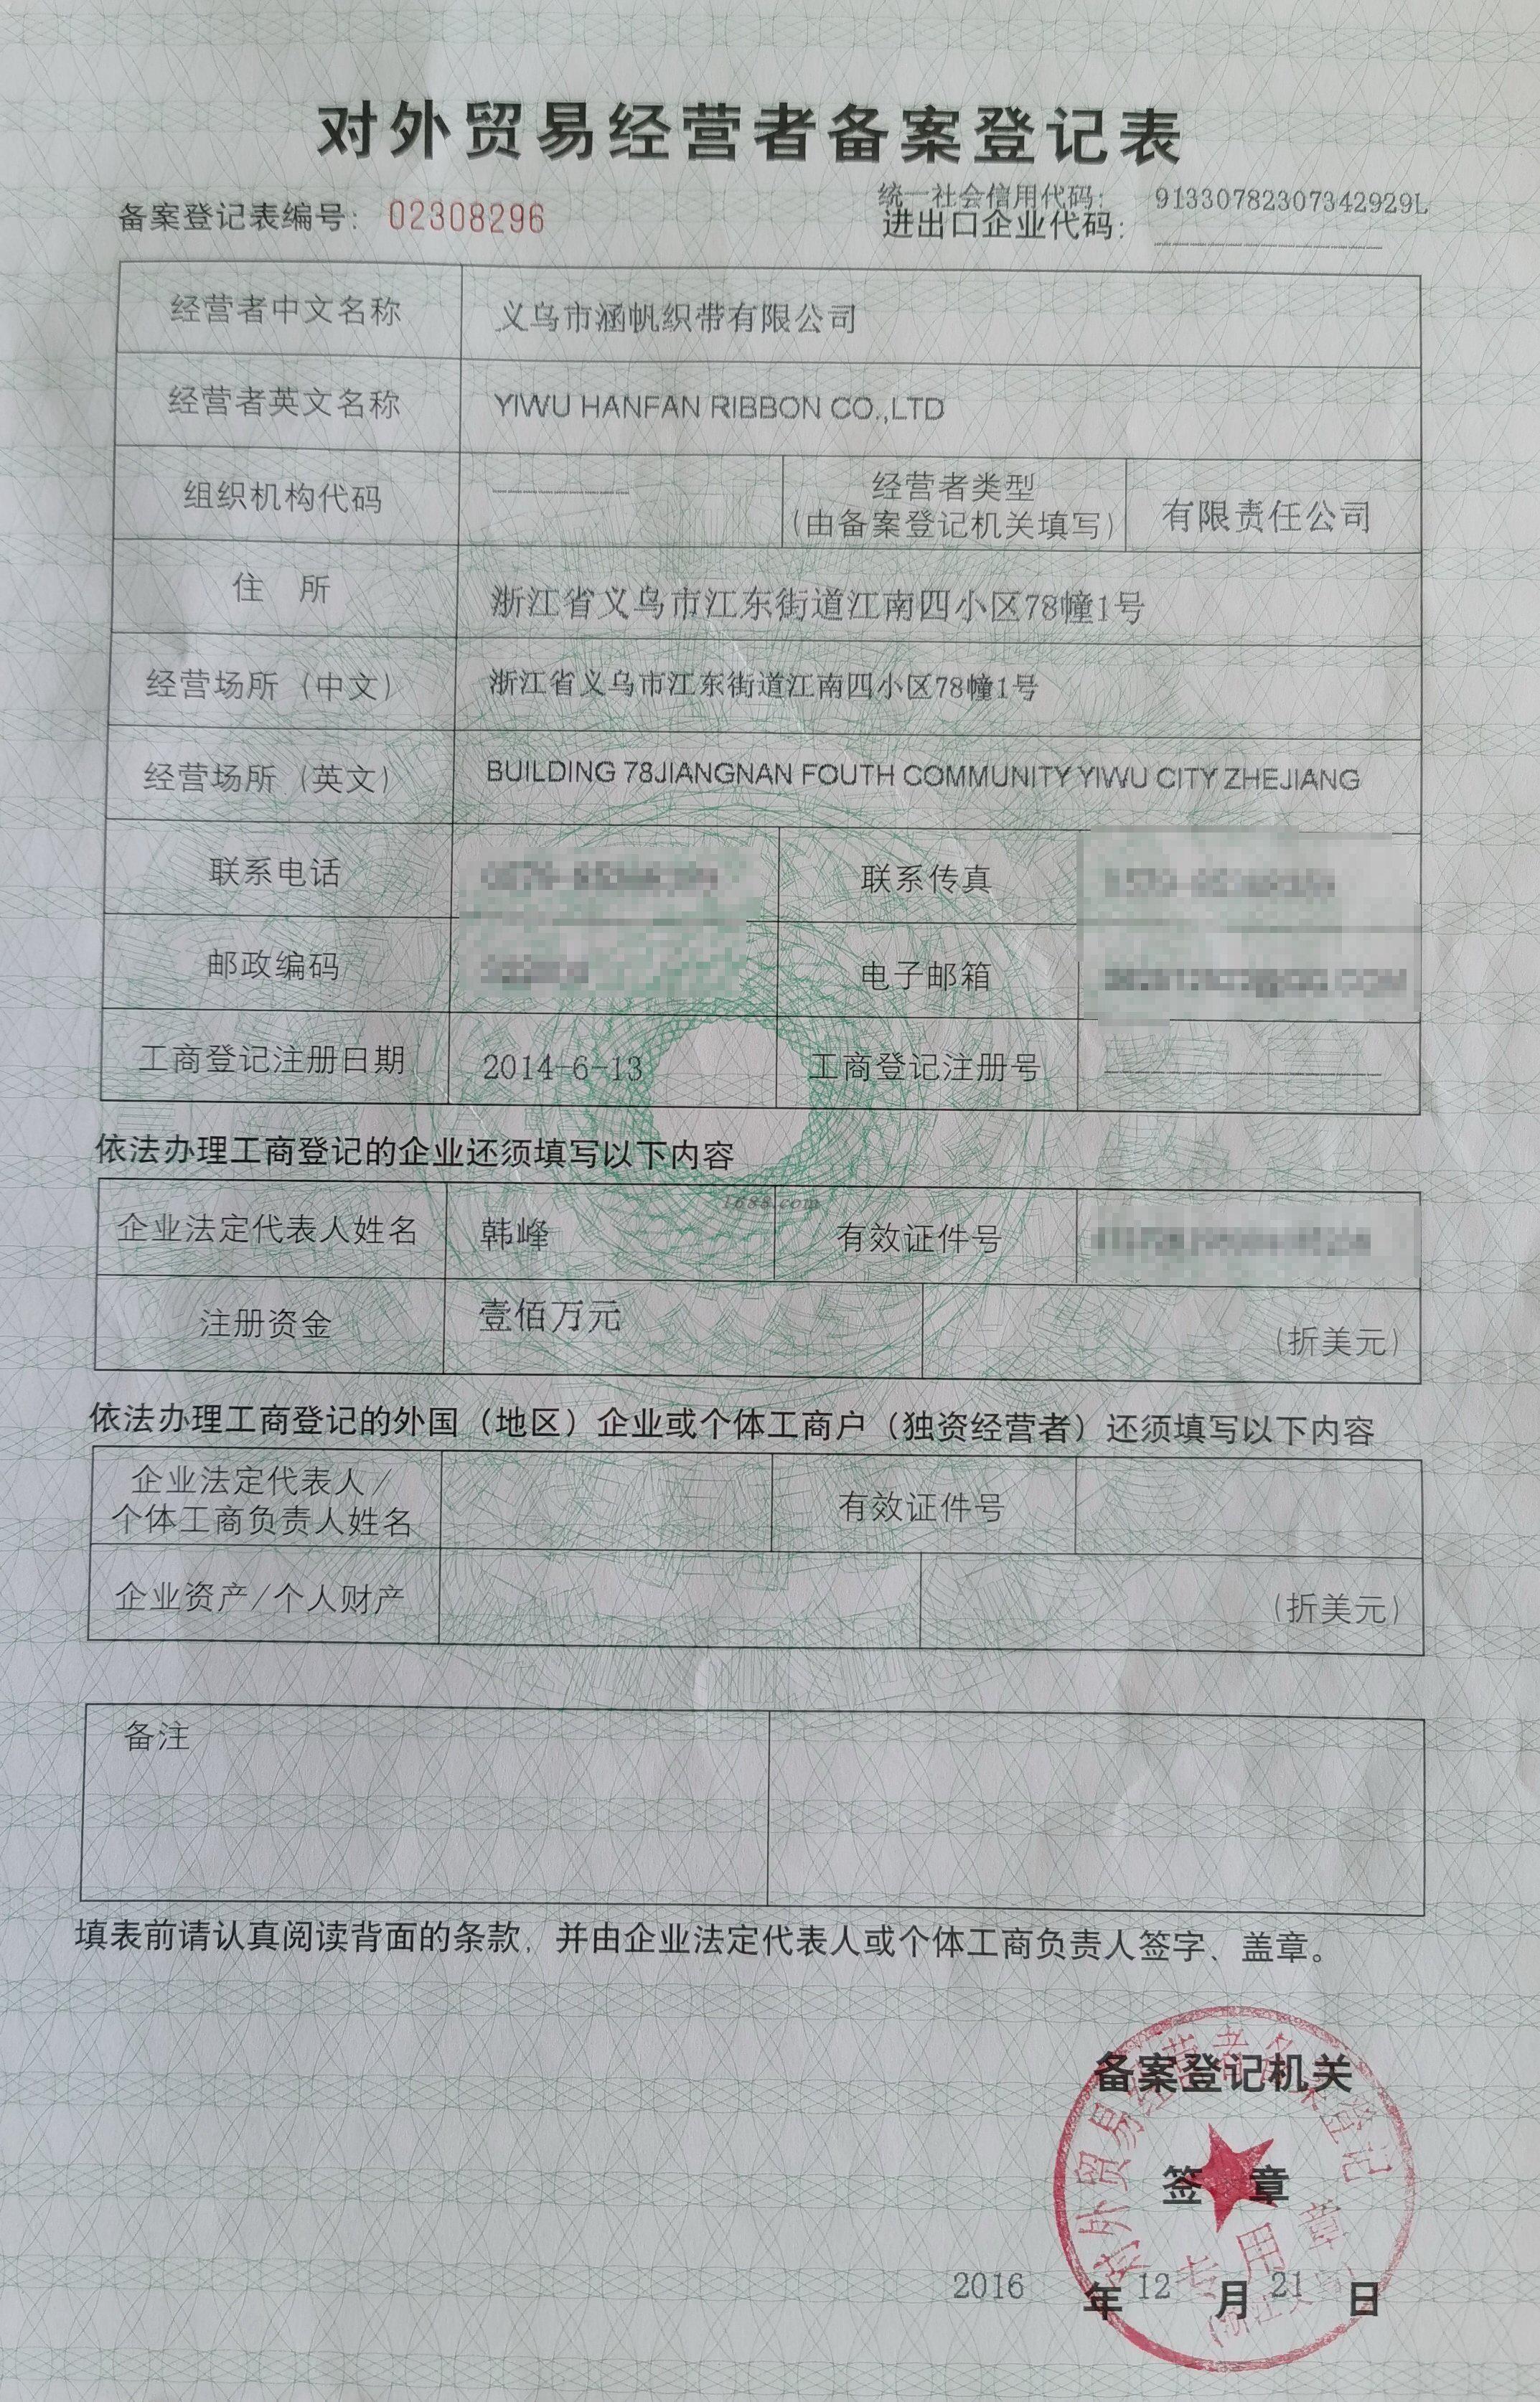 对外贸易经营者备案登记表
统一社会信用代码： 91330782307342929L
备案登记表编号： 02308296
进出口企业代码：
经营者中文名称 义乌市涵帆织带有限公司
经营者英文名称 YIWU HANFAN RIBBON CO.,LTD
组织机构代码
经营者类型
(由备案登记机关填写)
有限责任公司
住 所 浙江省义乌市江东街道江南四小区78幢1号
经营场所（中文） 浙江省义乌市江东街道江南四小区78幢1号
经营场所（英文） BUILDING 78JIANGNAN FOUTH COMMUNITY YIWU CITY ZHEJIANG
联系电话 联系传真
邮政编码 电子邮箱
工商登记注册日期 2014-6-13 工商登记注册号
依法办理工商登记的企业还须填写以下内容
1688.com
企业法定代表人姓名 韩峰 有效证件号
注册资金 壹佰万元 (折美元)
依法办理工商登记的外国（地区）企业或个体工商户（独资经营者）还须填写以下内容
企业法定代表人/
个体工商负责人姓名
有效证件号
企业资产/个人财产 (折美元)
备注
填表前请认真阅读背面的条款，并由企业法定代表人或个体工商负责人签字、盖章。
备案登记机关
签 章
对外贸易经营者备案登记
专用章
(浙江义乌)
2016 年 12 月 21 日